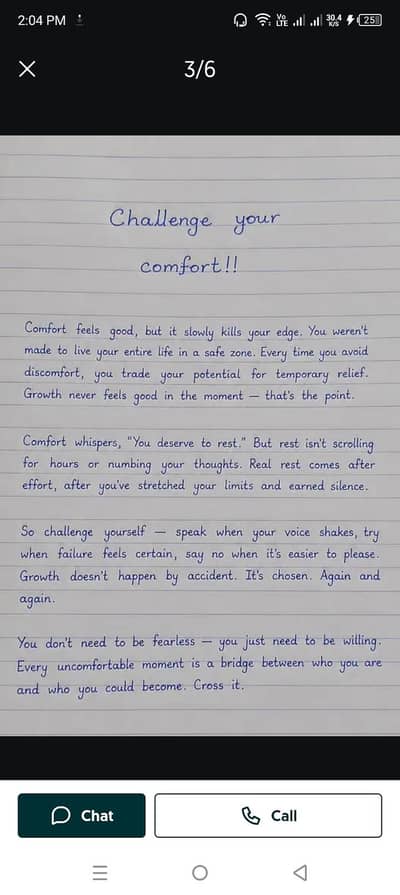 2:04 PM
Vo LTE 30.4 K/S 25
3/6
Challenge your
comfort!!
Comfort feels good, but it slowly kills your edge. You weren't
made to live your entire life in a safe zone. Every time you avoid
discomfort, you trade your potential for temporary relief.
Growth never feels good in the moment — that's the point.
Comfort whispers, "You deserve to rest." But rest isn't scrolling
for hours or numbing your thoughts. Real rest comes after
effort, after you've stretched your limits and earned silence.
So challenge yourself — speak when your voice shakes, try
when failure feels certain, say no when it's easier to please.
Growth doesn't happen by accident. It's chosen. Again and
again.
You don't need to be fearless — you just need to be willing.
Every uncomfortable moment is a bridge between who you are
and who you could become. Cross it.
Chat
Call